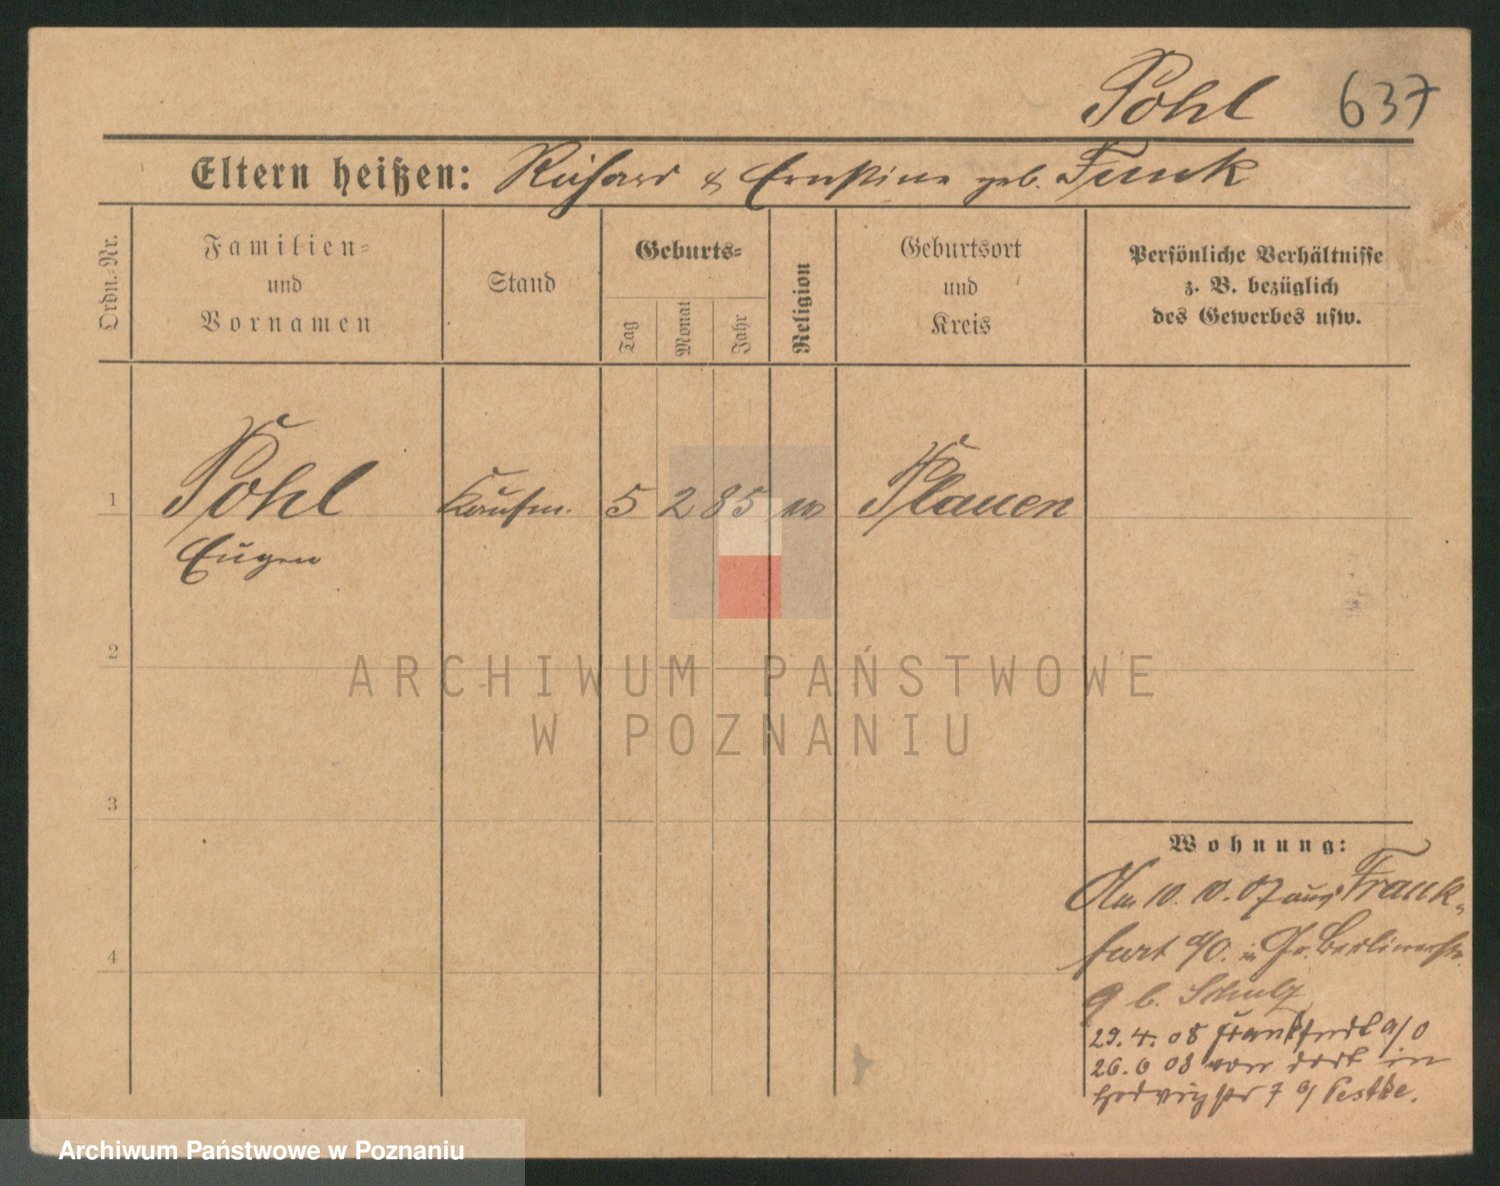 Pohl 637
Eltern heißen: Richard & Ernstine geb. Funk
Ordn.-Nr.
Familien-
und
Vornamen
Stand
Geburts-
Tag
Monat
Jahr
Religion
Geburtsort
und
Kreis
Persönliche Verhältnisse
z. B. bezüglich
des Gewerbes usw.
1 Pohl Kaufm. 5 2 85 Plauen
Eugen
2
3
4
Wohnung:
Am 10. 10. 07 aus Frank-
furt a/O. in Berlinerstr.
9 b. Schulz
29. 4. 08 Frankfurt a/O
26. 6 08 von dort in
Hedwigstr 7 b/ Pestke.
ARCHIWUM PAŃSTWOWE
W POZNANIU
Archiwum Państwowe w Poznaniu